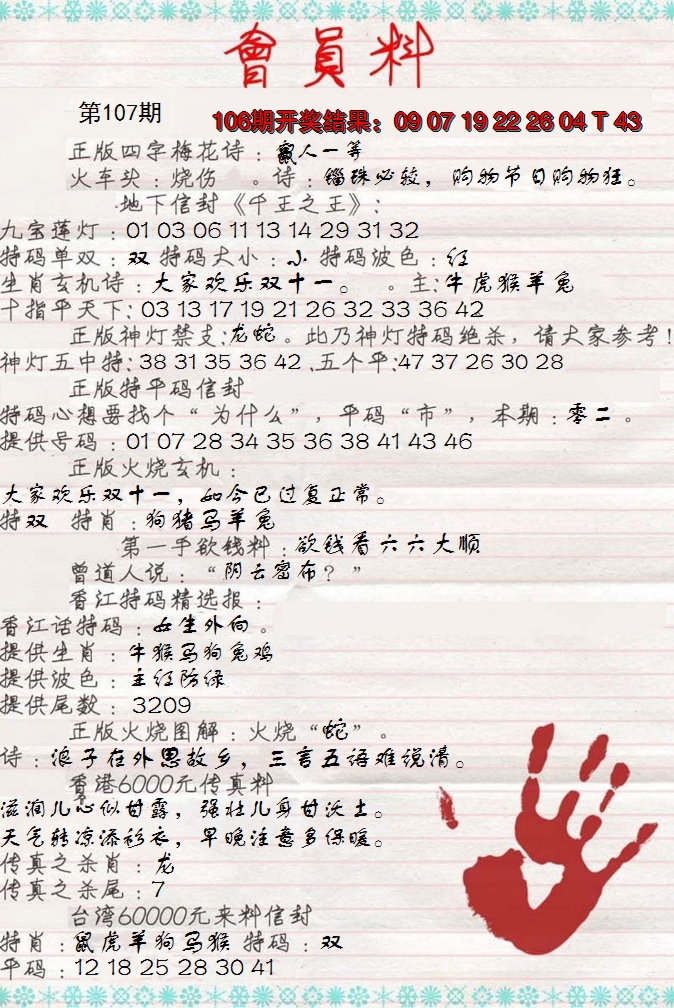 會員料
第107期
106期开奖结果：09 07 19 22 26 04 T 43
正版四字梅花诗：鼠人一等
火车头：烧伤 。诗：锱珠必较，购物节日购物狂。
地下信封《千王之王》：
九宝莲灯：01 03 06 11 13 14 29 31 32
特码单双：双 特码大小：小 特码波色：红
生肖玄机诗：大家欢乐双十一。 。主：牛虎猴羊兔
十指平天下：03 13 17 19 21 26 32 33 36 42
正版神灯禁支：龙蛇。此乃神灯特码绝杀，请大家参考！
神灯五中特：38 31 35 36 42 .五个平：47 37 26 30 28
正版特平码信封
特码心想要找个“为什么”，平码“市”，本期：零二。
提供号码：01 07 28 34 35 36 38 41 43 46
正版火烧玄机：
大家欢乐双十一，如今已过复正常。
特双 特肖：狗猪马羊兔
第一手欲钱料：欲钱看六六大顺
曾道人说：“阴云密布？”
香江特码精选报：
香江话特码：女生外向。
提供生肖：牛猴马狗兔鸡
提供波色：主红防绿
提供尾数：3209
正版火烧图解：火烧“蛇”。
诗：浪子在外思故乡，三言五语难说清。
香港6000元传真料
滋润儿心似甘露，强壮儿身甘沃土。
天气转凉添衫衣，早晚注意多保暖。
传真之杀肖：龙
传真之杀尾：7
台湾60000元来料信封
特肖：鼠虎羊狗马猴 特码：双
平码：12 18 25 28 30 41